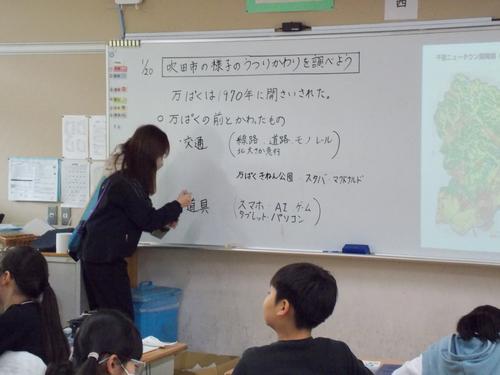 1/20
吹田市の様子のうつりかわりを調べよう
万ぱくは1970年に開さいされた。
○万ぱくの前とかわったもの
・交通
(線路・道路 モノレール)
北大さか急行
万ぱくきねん公園・スタバ・マクドナルド
道具
(スマホ・AI ゲーム)
タブレット・パソコン
千里ニュータウン開発前
四